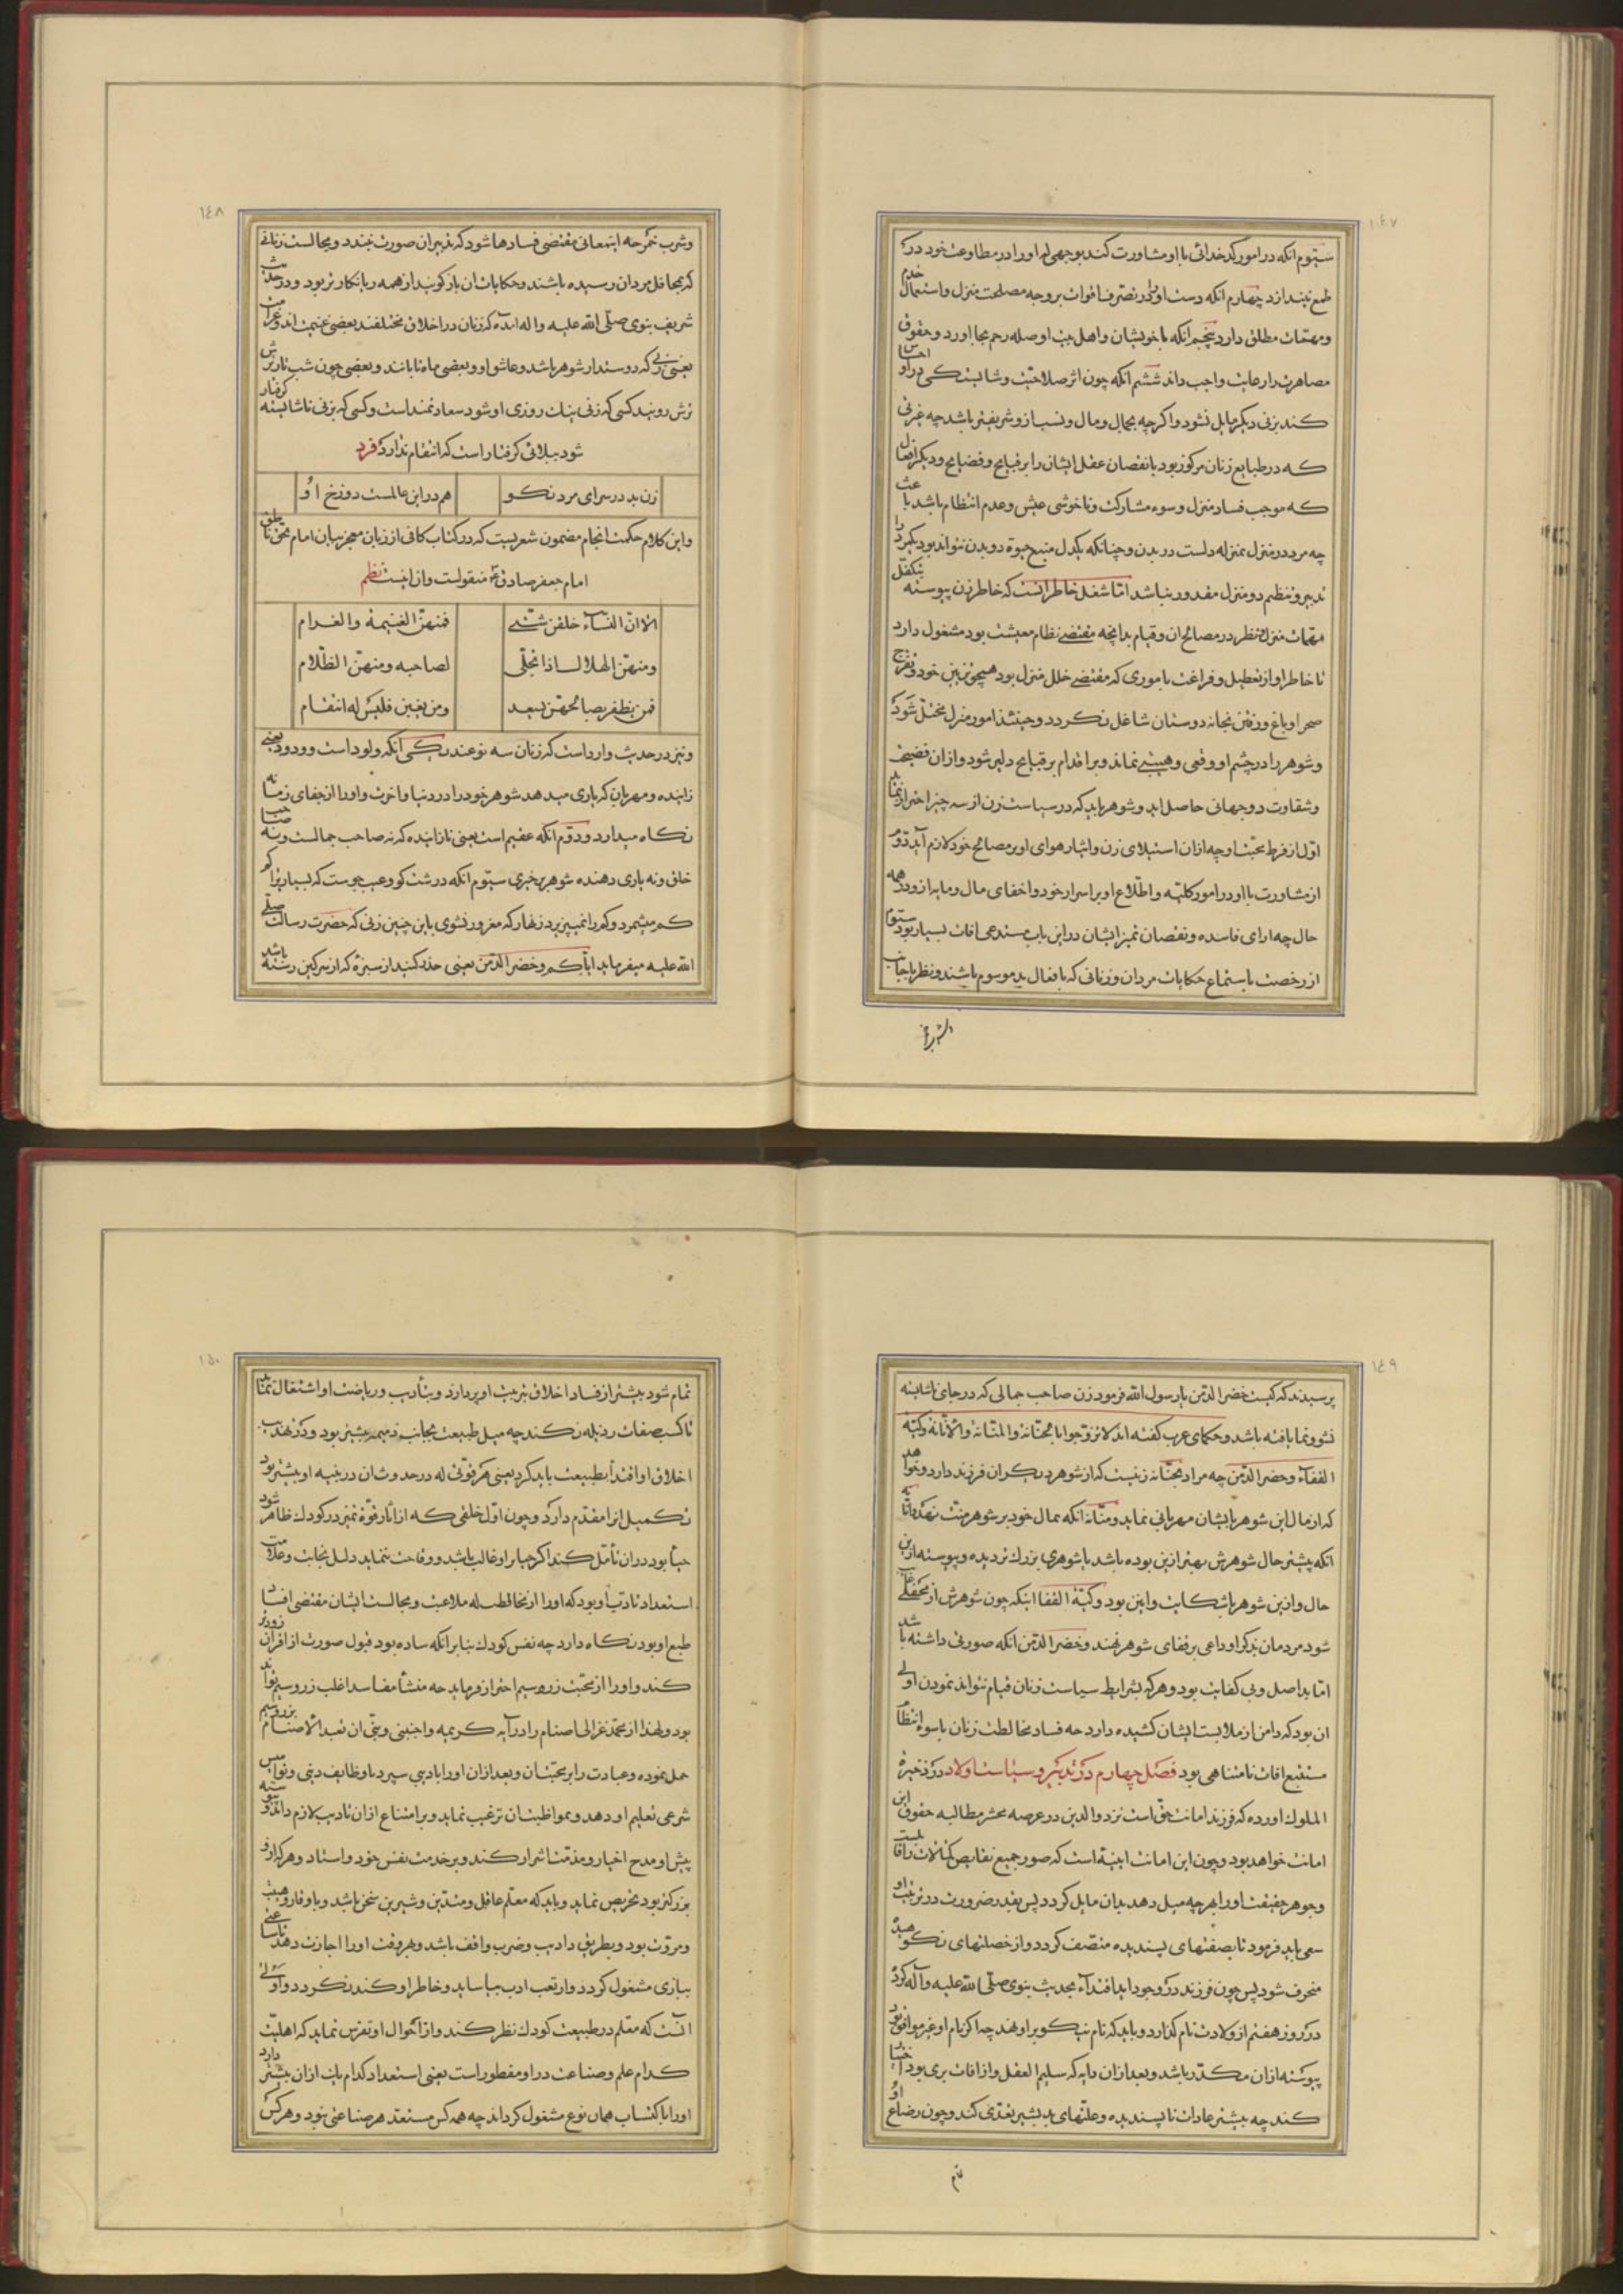 ١٤٧
سیّوم آنکه در امور کدخدائی با او مشاورت کند بوجهی که او را در مطاوعت خود در
طمع نیندازد چهارم آنکه دست او را در تصرف اقوات بر وجه مصلحت منزل و استعمال خدم
و مهمّات مطلق دارد پنجم آنکه با خویشان و اهل بیت او صله رحم بجا آورد و حقوق
مصاهرت را رعایت واجب داند ششم آنکه چون اثر صلاحیّت و شایستگی در او احساس
کند بزنی دیگر مایل نشود و اگرچه بجمال و مال و نسب از و شریفتر باشد چه غیرتی
که در طبایع زنان مرکوز بود با نقصان عقل ایشان را بر قبایح و فضایح و دیگر افعال
که موجب فساد منزل و سوء مشارکت و ناخوشی عیش و عدم انتظام باشد باعث
چه مرد در منزل بمنزله دلست در بدن و چنانکه یکدل منبع حیوة دو بدن نتواند بود یکمرد را
تدبیر و تنظیم دو منزل مقدور نباشد امّا شغل خاطر آنست که خاطر زن پیوسته بتکفّل
مهمّات منزل و نظر در مصالح آن و قیام بدانچه مقتضی نظام معیشت بود مشغول دارد
تا خاطر او از تعطیل و فراغت باموری که مقتضی خلل منزل بود همچو تزیین خود و تفرّج
صحرا و باغ و رفتن بخانه دوستان شاغل نگردد و حینئذ امور منزل مختل شود
و شوهر را در چشم او وقعی و هیبتی نماند و بر اقدام بر قبایح دلیر شود و از آن فضیحت
و شقاوت دو جهانی حاصل آید و شوهر باید که در سیاست زن از سه چیز احتراز نماید
اوّل از فرط محبّت او چه از آن استیلای زن و ایثار هوای او بر مصالح خود لازم آید دوّم
از مشاورت با او در امور کلیّه و اطّلاع او بر اسرار خود و اخفای مال و مایه از و در همه
حال چه آرای فاسده و نقصان تمیز ایشان در این باب مستدعی آفات بسیار بود سیّوم
از رخصت باستماع حکایات مردان و زنانی که بافعال بد موسوم باشند و نظر باجانب
و شرب خمر
١٤٨
و شرب خمر چه اینمعانی مقتضی فسادها شود که تدبیر آن صورت نبندد و مجالست زنانی
که بمحافل مردان رسیده باشند و حکایات آن بازگویند از همه زیانکارتر بود و در حدیث
شریف نبوی صلّی الله علیه و آله آمده که زنان در اخلاق مختلفند بعضی غنیمت‌اند و غرامت
یعنی زنی که دوستدار شوهر باشد و عاشق او و بعضی ماه تابانند و بعضی چون شب تاریک
ترش رویند کسی که زنی نیک روزی او شود سعادتمند است و کسی که بزنی ناشایسته گرفتار
شود ببلائی گرفتار است که انتقام ندارد فرد
زن بد در سرای مرد نکو هم در این عالمست دوزخ او
و این کلام حکمت انجام مضمون شعریست که در کتاب کافی از زبان معجز بیان امام بحق ناطق
امام جعفر صادق منقولست و آن اینست نظم
الا ان النساء خلقن شتی فمنهن الغنیمة والغرام
ومنهن الهلال اذا تجلی لصاحبه ومنهن الظلام
فمن یظفر بصالحهن یسعد ومن یغبن فلیس له انتقام
و نیز در حدیث وارد است که زنان سه نوعند یکی آنکه ولود است و ودود یعنی
زاینده و مهربان که یاری میدهد شوهر خود را در دنیا و آخرت و او را از جفای زمانه
نگاه میدارد و دوّم آنکه عقیم است یعنی نازاینده که نه صاحب جمالست و نه صاحب
خلق و نه یاری دهنده شوهر بر خیری سیّوم آنکه درشت گو و عیب جوست که بسیار را
کم میشمرد و کم را نمیپذیرد زنهار که مغرور نشوی باین چنین زنی که حضرت رسالت صلّی
الله علیه میفرماید ایّاکم و خضراء الدّمن یعنی حذر کنید از سبزه که از سرگین رسته باشد
١٤٩
پرسیدند که کیست خضراء الدّمن یا رسول الله فرمود زن صاحب جمالی که در جای ناشایسته
نشو و نما یافته باشد و حکمای عرب گفته‌اند لا تزوّجوا بالحنّانة والمنّانة والانّانة وکیّة
القفاء وخضراء الدّمن چه مراد بحنّانه زنیست که از شوهر دیگران فرزند دارد و خواهد
که از مال این شوهر بایشان مهربانی نماید و منّانه آنکه بمال خود بر شوهر منّت نهد و انّانه
آنکه پیشتر حال شوهرش بهتر ازین بوده باشد یا شوهری بزرگتر دیده و پیوسته از این
حال و ازین شوهر با شکایت و انین بود و کیّة القفا اینکه چون شوهرش از محفلی غایب
شود مردمان بذکر او داغی بر قفای شوهر نهند و خضراء الدّمن آنکه صورتی داشته باشد
امّا بد اصل و بی کفایت بود و هر که بشرایط سیاست زنان قیام نتواند نمودن اولی
آن بود که دامن از ملابست ایشان کشیده دارد چه فساد مخالطت زنان با سوء انتظام
مستتبع آفات نامتناهی بود فصل چهارم در تدبیر و سیاست اولاد در ذخیرة
الملوک آورده که فرزند امانت حق است نزد والدین در عرصه محشر مطالبه حقوق این
امانت خواهد بود و چون این امانت آینه است که صور جمیع نقایص و کمالات را قابلست
و جوهر حقیقت او را بهر چه میل دهند بدان مایل گردد پس بقدر ضرورت در تربیت او
سعی باید فرمود تا بصفتهای پسندیده متّصف گردد و از خصلتهای نکوهیده
منحرف شود پس چون فرزند در وجود آید اقتداء بحدیث نبوی صلّی الله علیه و آله کرده
در روز هفتم از ولادت نام گذارد و باید که نام نیکو بر او نهد چه اگر نام او غیر موافق بود
پیوسته از آن مکدّر باشد و بعد از آن دایه که سلیم العقل و از آفات بری بود اختیار
کند چه بیشتر عادات ناپسندیده و علّتهای بد بشیر تعدّی کند و چون رضاع او
تمام
١٥٠
تمام شود پیشتر از فساد اخلاق بتربیت او پردازد و بتأدیب و ریاضت او اشتغال نماید
تا کسب صفات رذیله نکند چه میل طبیعت بجانب ذمیمه بیشتر بود و در تهذیب
اخلاق او اقتدا بطبیعت باید کرد یعنی هر قوّتی که در حدوث آن در بنیه او بیشتر بود
تکمیل آنرا مقدّم دارد و چون اوّل خلقی که از آثار قوّة تمیز در کودک ظاهر شود
حیا بود در آن تأمّل کند اگر حیا بر او غالب باشد و وقاحت ننماید دلیل نجابت و علامت
استعداد تأدّب او بود که او را از مخالطت که ملاعبت و مجالست ایشان مقتضی افساد
طبع او بود نگاه دارد چه نفس کودک بنابر آنکه ساده بود قبول صورت از اقران زودتر
کند و او را از محبّت زر و سیم احتراز فرماید چه منشأ مفاسد اغلب زر و سیم تواند
بود و لهذا از محمّد غزالی اصنام را در آیه کریمه واجنبنی وبنیّ ان نعبد الاصنام بزر و سیم
حمل نموده و عبادت را بر محبّت آن و بعد از آن او را بادیبی سپرد تا وظایف دینی و نوامیس
شرعی تعلیم او دهد و بمواظبت آن ترغیب نماید و بر امتناع از آن تادیب لازم داند و پیوسته
پیش او مدح اخیار و مذمّت اشرار کند و بر خدمت نفس خود و استاد و هر که از او
بزرگتر بود تحریص نماید و باید که معلّم عاقل و متدیّن و شیرین سخن باشد و باوقار و هیبت
و مروّت بود و بطریق دادیب و ضرب واقف باشد و بهر وقت او را اجازت دهد تا ساعتی
ببازی مشغول گردد و از تعب ادب بیاساید و خاطر او کند نگردد و اولی
آنست که معلّم در طبیعت کودک نظر کند و از احوال او تفرّس نماید که اهلیّت
کدام علم و صناعت در او مفطور است یعنی استعداد کدام باب از آن بیشتر دارد
او را باکتساب همان نوع مشغول گرداند چه همه کس مستعد هر صناعتی نبود و هر کس